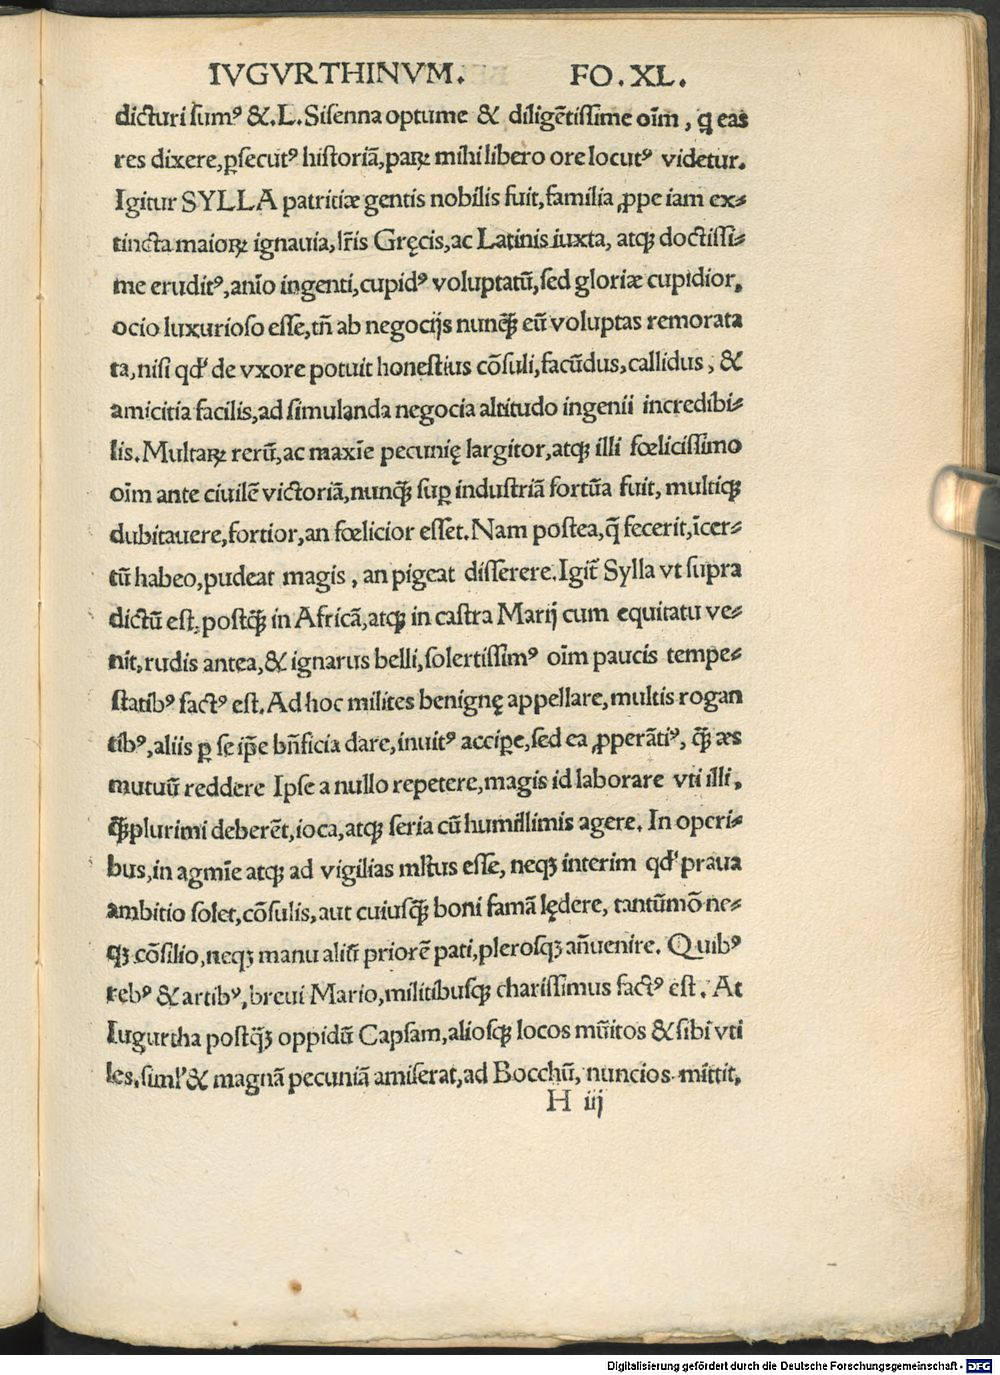 IVGVRTHINVM. FO. XL.
dicturi sumꝰ &. L. Sisenna optume & diligẽtissime oĩm, q eas
res dixere, ꝑsecutꝰ historiã, paꝝ mihi libero ore locutꝰ videtur.
Igitur SYLLA patritiæ gentis nobilis fuit, familia ꝓpe iam ex⸗
tincta maioꝝ ignauia, lr̃is Gręcis, ac Latinis iuxta, atqꝫ doctissi⸗
me eruditꝰ, anĩo ingenti, cupidꝰ voluptatũ, sed gloriæ cupidior,
ocio luxurioso esse, tñ ab negocijs nunq̃ꝫ eũ voluptas remorata
ta, nisi qd' de vxore potuit honestius cõsuli, facũdus, callidus, &
amicitia facilis, ad simulanda negocia altitudo ingenii incredibi⸗
lis. Multaꝝ rerũ, ac maxĩe pecunię largitor, atqꝫ illi fœlicissimo
oĩm ante ciuilẽ victoriã, nunq̃ꝫ suꝑ industriã fortũa fuit, multiqꝫ
dubitauere, fortior, an fœlicior esset. Nam postea, q̃ fecerit, ĩcer⸗
tũ habeo, pudeat magis, an pigeat disserere. Igit̃ Sylla vt supra
dictũ est, postq̃ꝫ in Africã, atqꝫ in castra Marij cum equitatu ve⸗
nit, rudis antea, & ignarus belli, solertissimꝰ oĩm paucis tempe⸗
statibꝰ factꝰ est. Ad hoc milites benignę appellare, multis rogan
tibꝰ, aliis ꝑ se ip̃e bñficia dare, inuitꝰ acciꝑe, sed ea ꝓperãtiꝰ, q̃ꝫ æs
mutuũ reddere Ipse a nullo repetere, magis id laborare vti illi,
q̃ꝫplurimi deberẽt, ioca, atqꝫ seria cũ humillimis agere. In operi⸗
bus, in agmĩe atqꝫ ad vigilias ml̃tus esse, neqꝫ interim qd' praua
ambitio solet, cõsulis, aut cuiusq̃ꝫ boni famã lędere, tantũmõ ne⸗
qꝫ cõsilio, neqꝫ manu aliũ priorẽ pati, plerosqꝫ añuenire. Quibꝰ
rebꝰ & artibꝰ, breui Mario, militibusqꝫ charissimus factꝰ est. At
Iugurtha postq̃ꝫ oppidũ Capsam, aliosqꝫ locos mũitos & sibi vti
les, siml' & magnã pecuniã amiserat, ad Bocchũ, nuncios mittit,
H iij
Digitalisierung gefördert durch die Deutsche Forschungsgemeinschaft - DFG